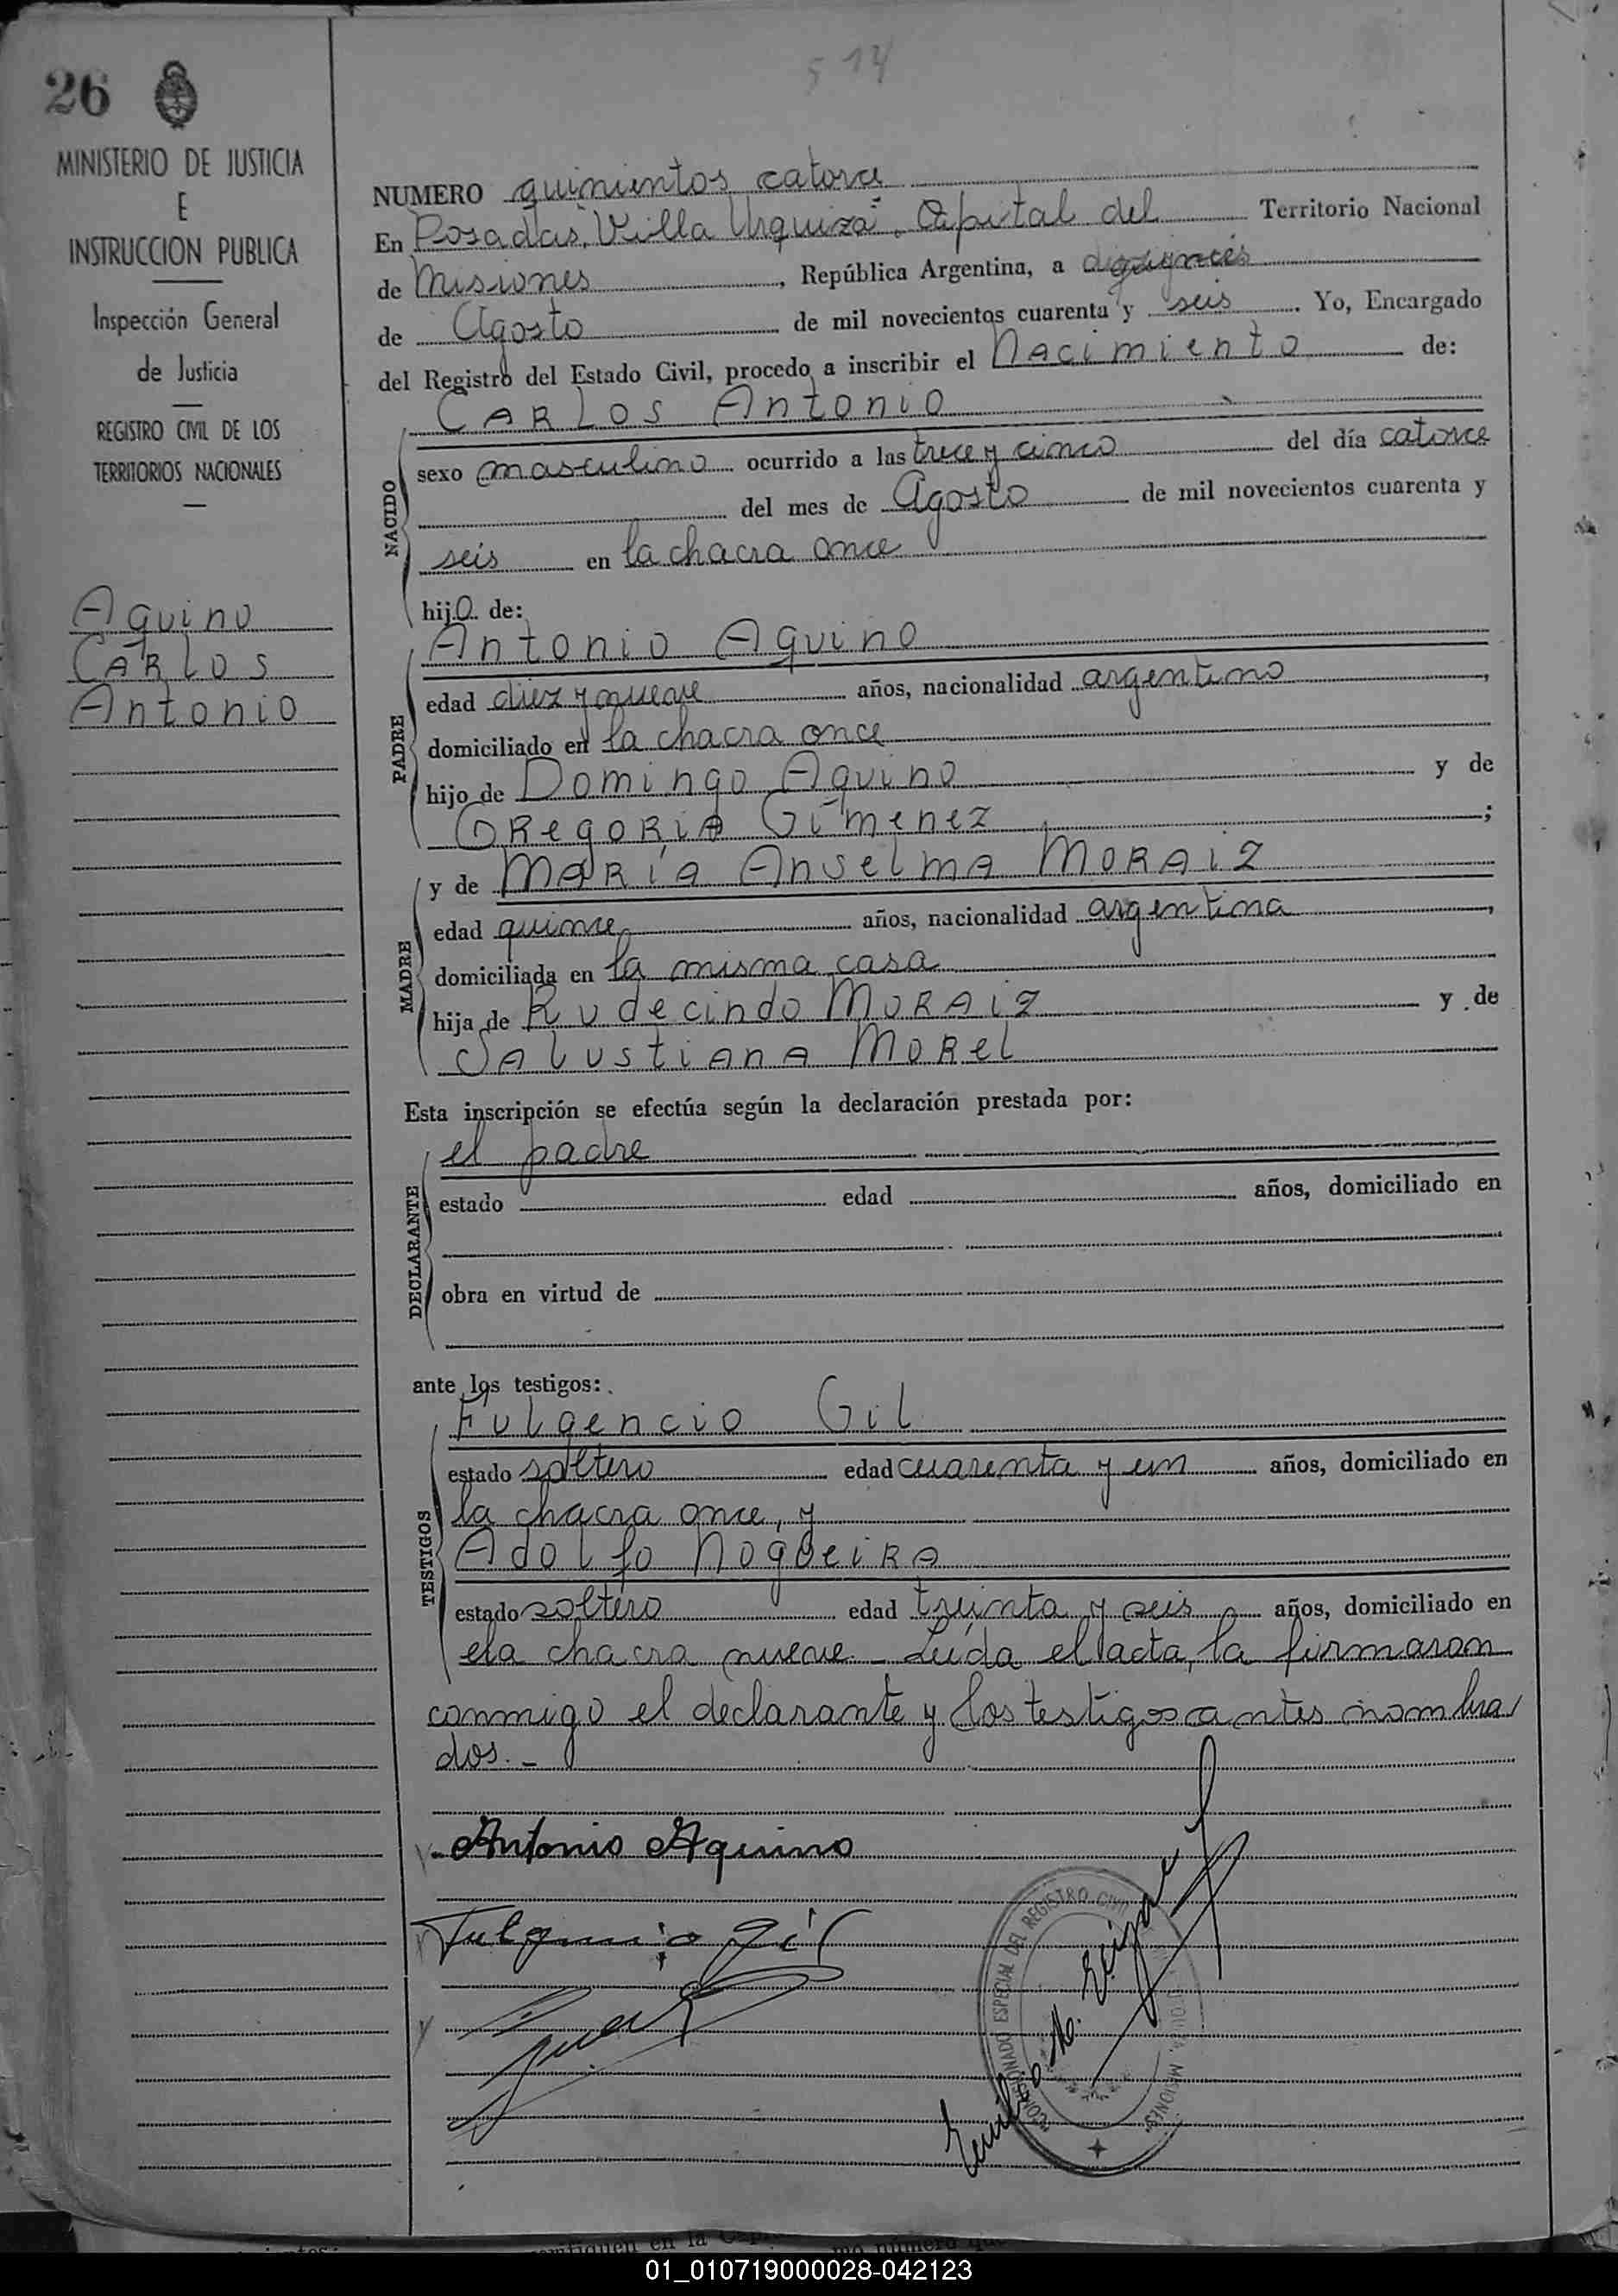 514
26
MINISTERIO DE JUSTICIA
E
INSTRUCCION PUBLICA
Inspección General
de Justicia
REGISTRO CIVIL DE LOS
TERRITORIOS NACIONALES
Aquino
Carlos
Antonio
NUMERO quinientos catorce
En Posadas, "Villa Urquiza", Capital del Territorio Nacional
de Misiones, República Argentina, a
de Agosto de mil novecientos cuarenta y seis. Yo, Encargado
del Registro del Estado Civil, procedo a inscribir el Nacimiento de:
NACIDO
Carlos Antonio
sexo masculino ocurrido a las trece y cinco del día catorce
del mes de Agosto de mil novecientos cuarenta y
seis en la chacra once
hijo de:
PADRE
Antonio Aquino
edad diez y nueve años, nacionalidad argentino,
domiciliado en la chacra once
hijo de Domingo Aquino y de
Gregoria Gimenez;
MADRE
y de María Anselma Moraiz
edad quince años, nacionalidad argentina,
domiciliada en la misma casa
hija de Rudecindo Moraiz y de
Salustiana Morel
Esta inscripción se efectúa según la declaración prestada por:
DECLARANTE
el padre
estado edad años, domiciliado en
obra en virtud de
ante los testigos:
TESTIGOS
Fulgencio Gil
estado soltero edad cuarenta y un años, domiciliado en
la chacra once, y
Adolfo Nogueira
estado soltero edad treinta y seis años, domiciliado en
ela chacra nueve.- Leída el acta, la firmaron
conmigo el declarante y los testigos antes nombra
dos.-
Antonio Aquino
Fulgencio Gil
COMISIONADO ESPECIAL DEL REGISTRO CIVIL
MISIONES
01_010719000028-042123